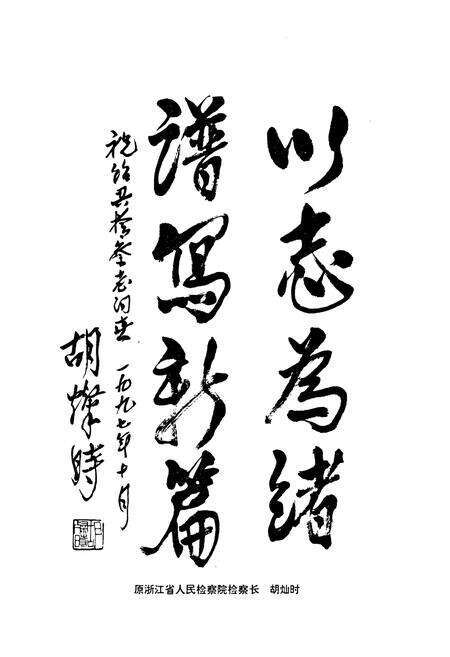 以志為緒
譜寫新篇
祝绍兴检察志问世 一九九七年十月
胡燦時
原浙江省人民检察院检察长 胡灿时